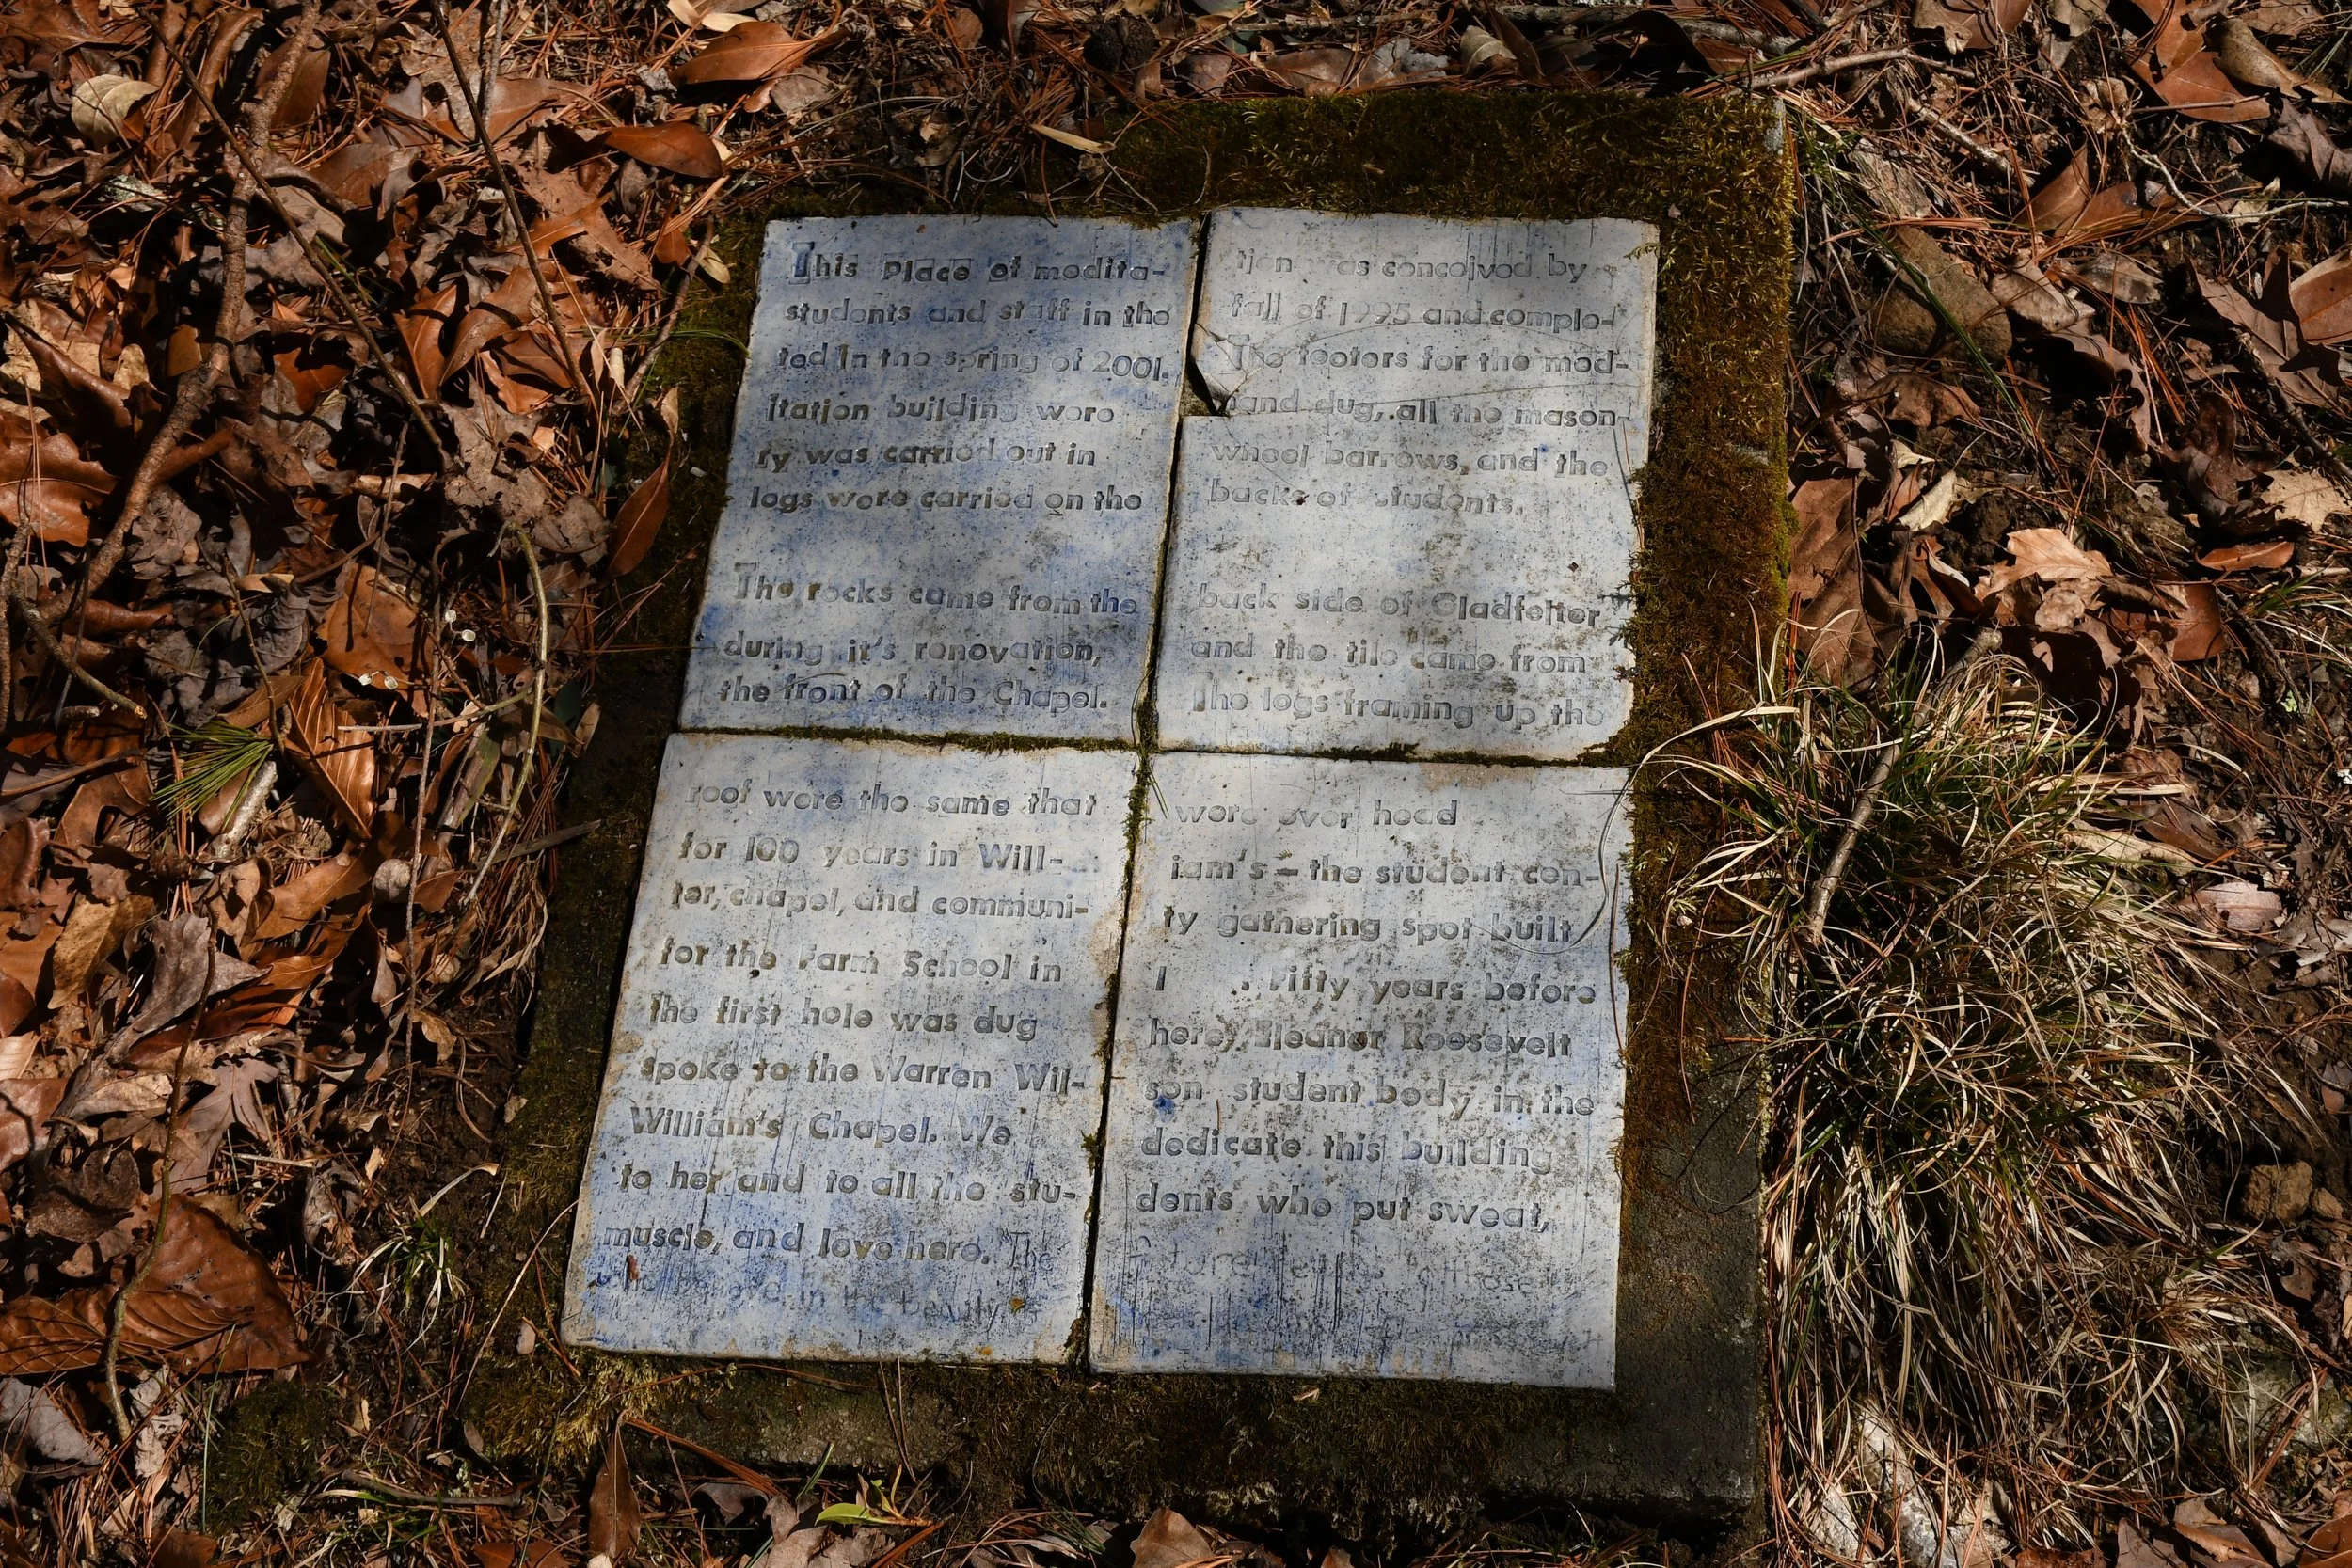 This Place of medita- tion was conceived by
students and staff in the fall of 1995 and comple-
ted in the spring of 2001. The footers for the med-
itation building were hand dug, all the mason-
ry was carried out in wheel barrows, and the
logs were carried on the backs of students.
The rocks came from the back side of Gladfelter
during it's renovation, and the tile came from
the front of the Chapel. The logs framing up the
roof were the same that were over head
for 100 years in Will- iam's – the student cen-
ter, chapel, and communi- ty gathering spot built
for the Farm School in . Fifty years before
the first hole was dug here, Eleanor Roosevelt
spoke to the Warren Wil- son student body in the
William's Chapel. We dedicate this building
to her and to all the stu- dents who put sweat,
muscle, and love here. The
believe in the beauty